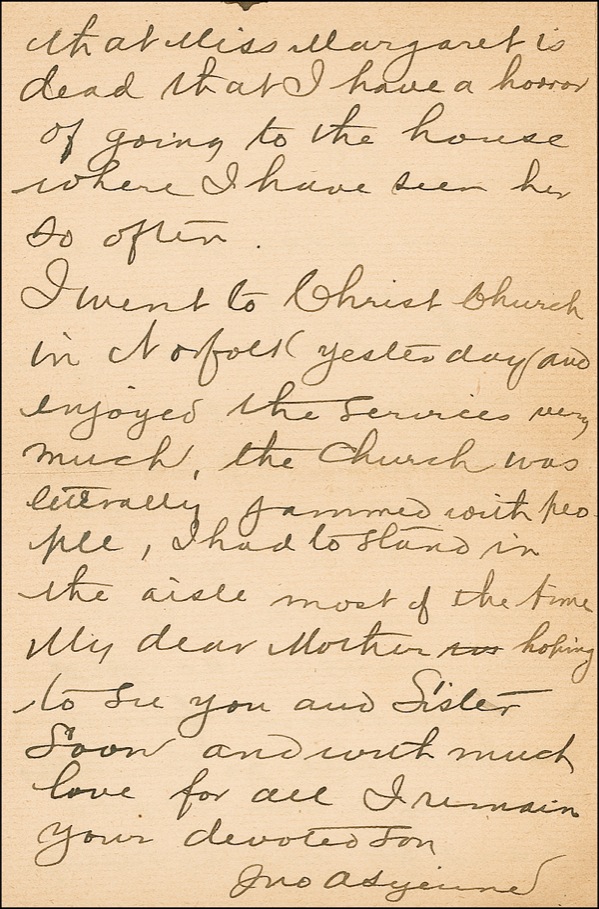 that Miss Margaret is
dead that I have a horror
of going to the house
where I have seen her
so often.
I went to Christ Church
in Norfolk yesterday and
enjoyed the services very
much, the Church was
literally jammed with peo-
ple, I had to stand in
the aisle most of the time
My dear Mother hoping
to see you and Sister
Soon and with much
love for all I remain
your devoted son
Jno